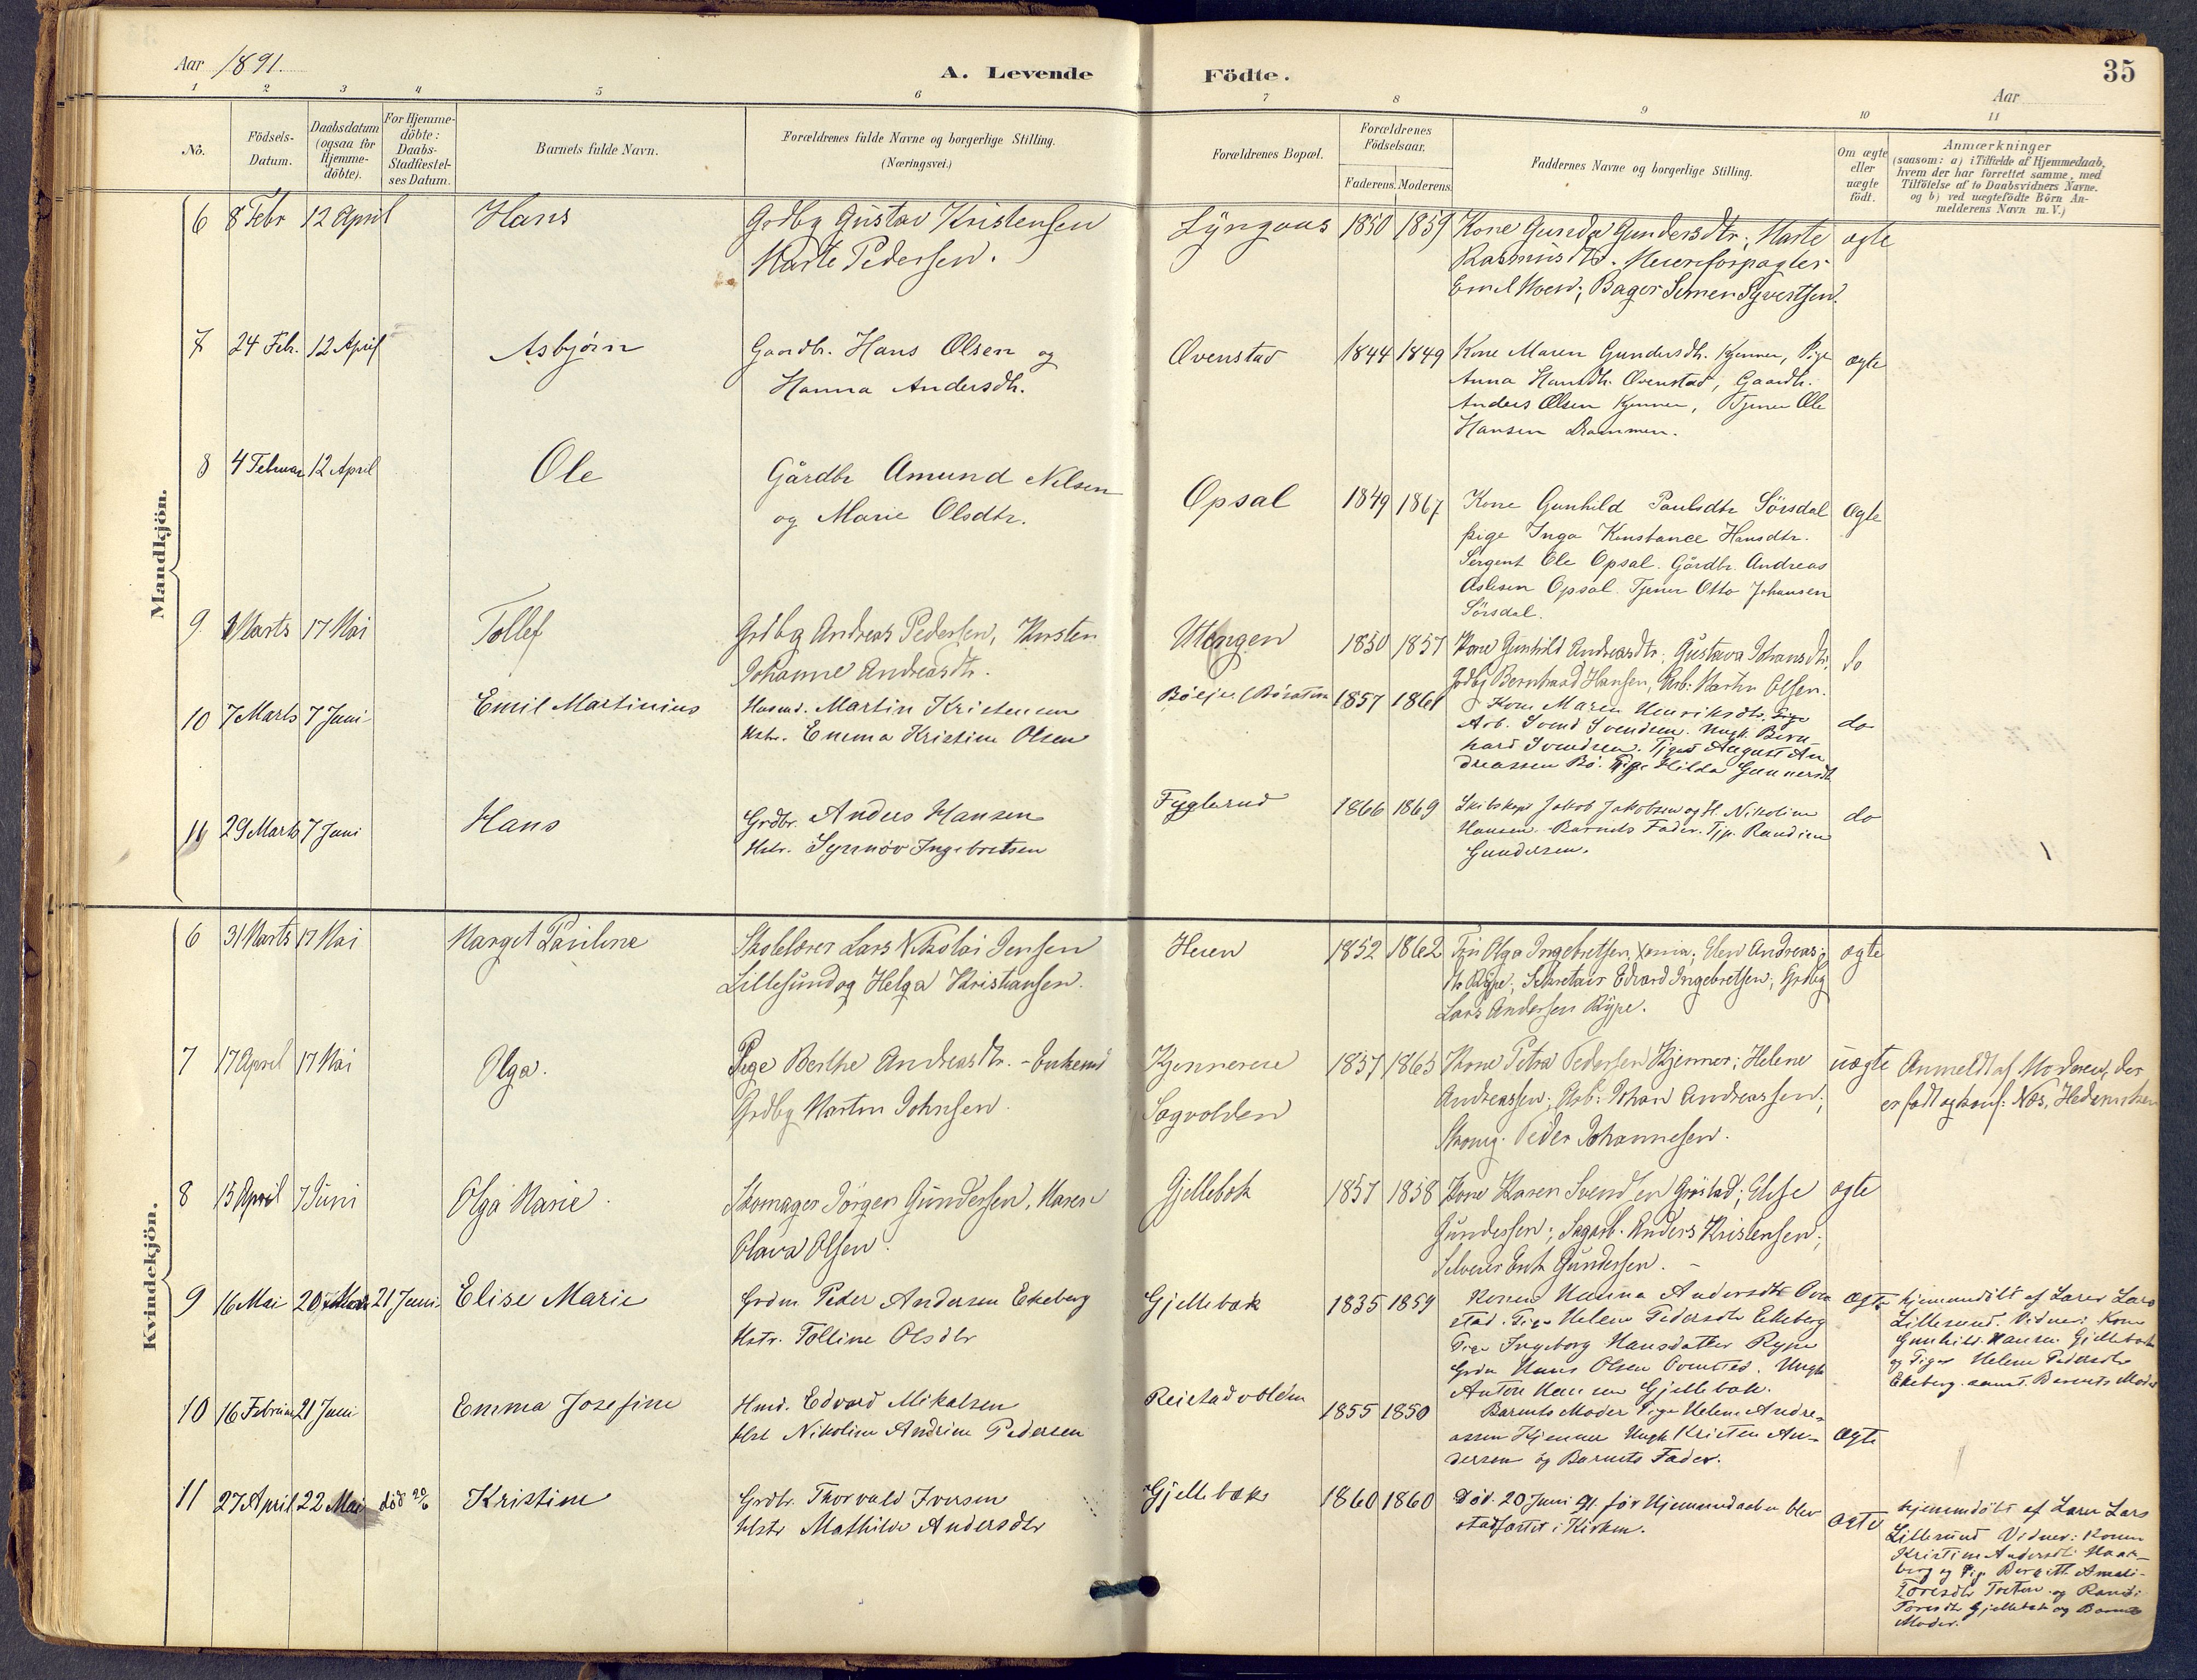 Aar 1891.
A. Levende Födte.
35
Aar
1 2 3 4 5 6 7 8 9 10 11
No.
Födsels-Datum.
Daabsdatum (ogsaa for Hjemme-döbte).
For Hjemme-döbte: Daabs-Stadfæstel-ses Datum.
Barnets fulde Navn.
Forældrenes fulde Navne og borgerlige Stilling. (Næringsvei.)
Forældrenes Bopæl.
Forældrenes Födselsaar.
Faderens. Moderens.
Faddernes Navne og borgerlige Stilling.
Om ægte eller uægte födt.
Anmærkninger
(saasom: a) i Tilfælde af Hjemmedaab,
hvem der har forrettet samme, med
Tilföielse af to Daabsvidners Navne.
og b) ved uægtefödte Börn An-
melderens Navn m.V.)
Mandkjön.
6 8 Febr 12 April Hans Grdbg Gustav Kristensen Lyngaas 1850 1859 Kone Guneda Gundersdtr; Marte ægte
Marte Pedersen. Rasmusdtr. Meieriforpagter
Emil Moen; Bager Simen Syvertsen.
7 24 Feb. 12 April Asbjörn Gaardbr. Hans Olsen og Ovenstad 1844 1849 Kone Maren Gundersdtr. Kjenner, Pige ægte
Hanna Andersdtr. Anna Hansdtr. Ovenstad, Gaardbr.
Anders Olsen Kjenner, Tjener Ole
Hansen Drammen.
8 4 Februar 12 April Ole Gårdbr Amund Nilsen Opsal 1849 1867 Kone Gunhild Paulsdtr Sörsdal Ægte
og Marie Olsdtr. Pige Inga Konstance Hansdtr.
Sergent Ole Opsal. Gårdbr. Andreas
Aslesen Opsal. Tjener Otto Johansen
Sörsdal.
9 Marts 17 Mai Tollef Grdbg Andreas Pedersen, Kirsten Utengen 1850 1857 Kone Gunhild Andreasdtr, Gustava Johansdtr. do
Johanne Andreasdtr. Grdbg Bernhard Hansen, Arb: Martin Olsen.
10 7 Marts 7 Juni Emil Martinius Husmd. Martin Kristensen 1857 1861 Kone Maren Henriksdtr. Pige do
Hstr. Emma Kristine Olsen Arb. Svend Svendsen. Ungk. Bern-
hard Svendsen. Tjener August An-
dreassen Bö. Pige Hilda Gunnersdtr
11 29 Marts 7 Juni Hans Grdbr. Anders Hansen Fyglerud 1866 1869 Skibskapt Jakob Jakobsen og H. Nikoline do
Hstr. Synnöv Ingebretsen Hansen. Barnets Fader. Tjp. Randine
Gundersen.
Kvindekjön.
6 31 Marts 17 Mai Marget Pauline Skolelærer Lars Nikolai Jensen Heien 1852 1862 Frk Olga Ingebretsen, Xania; Elen Andreas- ægte
Lillesund og Helga Kristiansen. dtr Rype, Sekretair Edvard Ingebretsen; Grdbg
Lars Andersen Rype.
7 17 April 17 Mai Olga. Pige Berthe Andreasdtr. - Enkemd Kjennereie 1837 1863 Kone Petra Pedersen Kjenner; Helene uægte Anmeldt af Moderen, der
Grdbg Martin Johnsen. Sagvolden Andreassen; Arb: Johan Andreassen; er født og konf: Næs, Hedemarken
Skomg. Peder Johannesen.
8 15 April 7 Juni Olga Marie. Skomager Jörgen Gundersen, Maren Gjellebæk 1857 1858 Kone Karen Svendsen Gröstad; Elise ægte
Olava Olsen. Gundersen; Sagarb. Anders Kristensen;
Selveier Enk Gundersen.
9 16 Mai 20 21 Juni Elise Marie Grdm Peder Andersen Ekeberg Gjellebæk 1835 1859 Konen Hanna Andersdtr Oven- Ægte hjemmedöbt af Lærer Lars
Hstr. Tolline Olsdtr stad. Pige Helene Pedersdtr Ekeberg Lillesund. Vidner: Kone
Pige Ingeborg Hansdatter Rype Gunhild Hansen Gjellebæk
Grdm Hans Olsen Ovenstad. Ungk og Pige Helene Pedersdtr
Anton Hansen Gjellebæk. Ekeberg samt Barnets Moder
10 16 Februar 21 Juni Emma Josefine Hmd. Edvard Mikalsen Reistadvolden 1855 1850 Barnets Moder Pige Helene Andre- Ægte
Hst Nikoline Andrine Pedersen assen Kjenner Ungk Kristen An-
dersen og Barnets Fader.
11 27 April 22 Mai död 20/6 Kristine Grdbr. Thorvald Iversen Gjellebæk 1860 1860 Död. 20 Juni 91. för Hjemmedaaben blev Ægte hjemmedöbt af Lærer Lars
Hstr Mathilde Andersdtr stadfæstet i Kirken. Lillesund Vidner: Konen
Kristine Andersdtr Haak-
berg og Pige Bergitte Amali-
Toresdtr Toeten og Randi
Toresdtr Gjellebæk og Barnets
Moder.